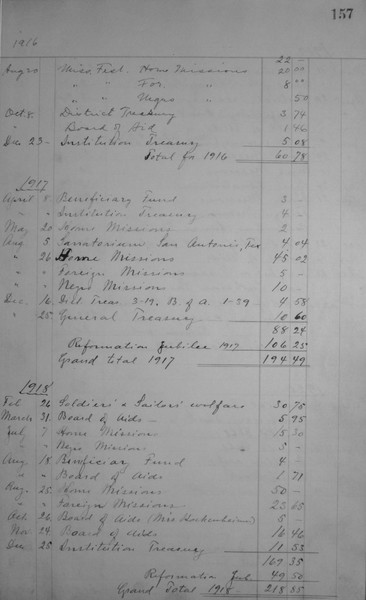 157
1916
22 -
Aug 20 Miss. Fest. Home Missions 20 00
" " For. " 8 00
" " Negro " 50
Oct. 8. District Treasury 3 74
" Board of Aid 1 46
Dec 23 - Institution Treasury 5 08
Total for 1916 60 78
1917
April 8 Beneficiary Fund 3 -
" " Institution Treasury 4 -
May 20 Home Missions 2 -
Aug 5 Sanatorium San Antonio, Tex 4 04
" 26 Home Missions 45 02
" " Foreign Missions 5 -
" " Negro Mission 10
Dec. 16 Dist Treas. 3-19, B of A. 1-39 4 58
" 25 General Treasury 10 60
88 24
Reformation Jubilee 1917 106 25
Grand total 1917 194 49
1918
Feb 26 Soldier's & Sailors' welfare 30 75
March 31 Board of Aids - 5 95
July 7 Home Missions 15 30
" " Negro Missions 5 -
Aug. 18 Beneficiary Fund 4 -
" " Board of Aids 1 71
Aug. 25 Home Missions 50 -
" " Foreign Missions 23 65
Oct. 26 Board of Aids (Miss Hockenheimer) 5 -
Nov. 24 Board of Aids 16 46
Dec 25 Institution Treasury 11 53
169 35
Reformation Jub. 49 50
Grand Total 1918 218 85